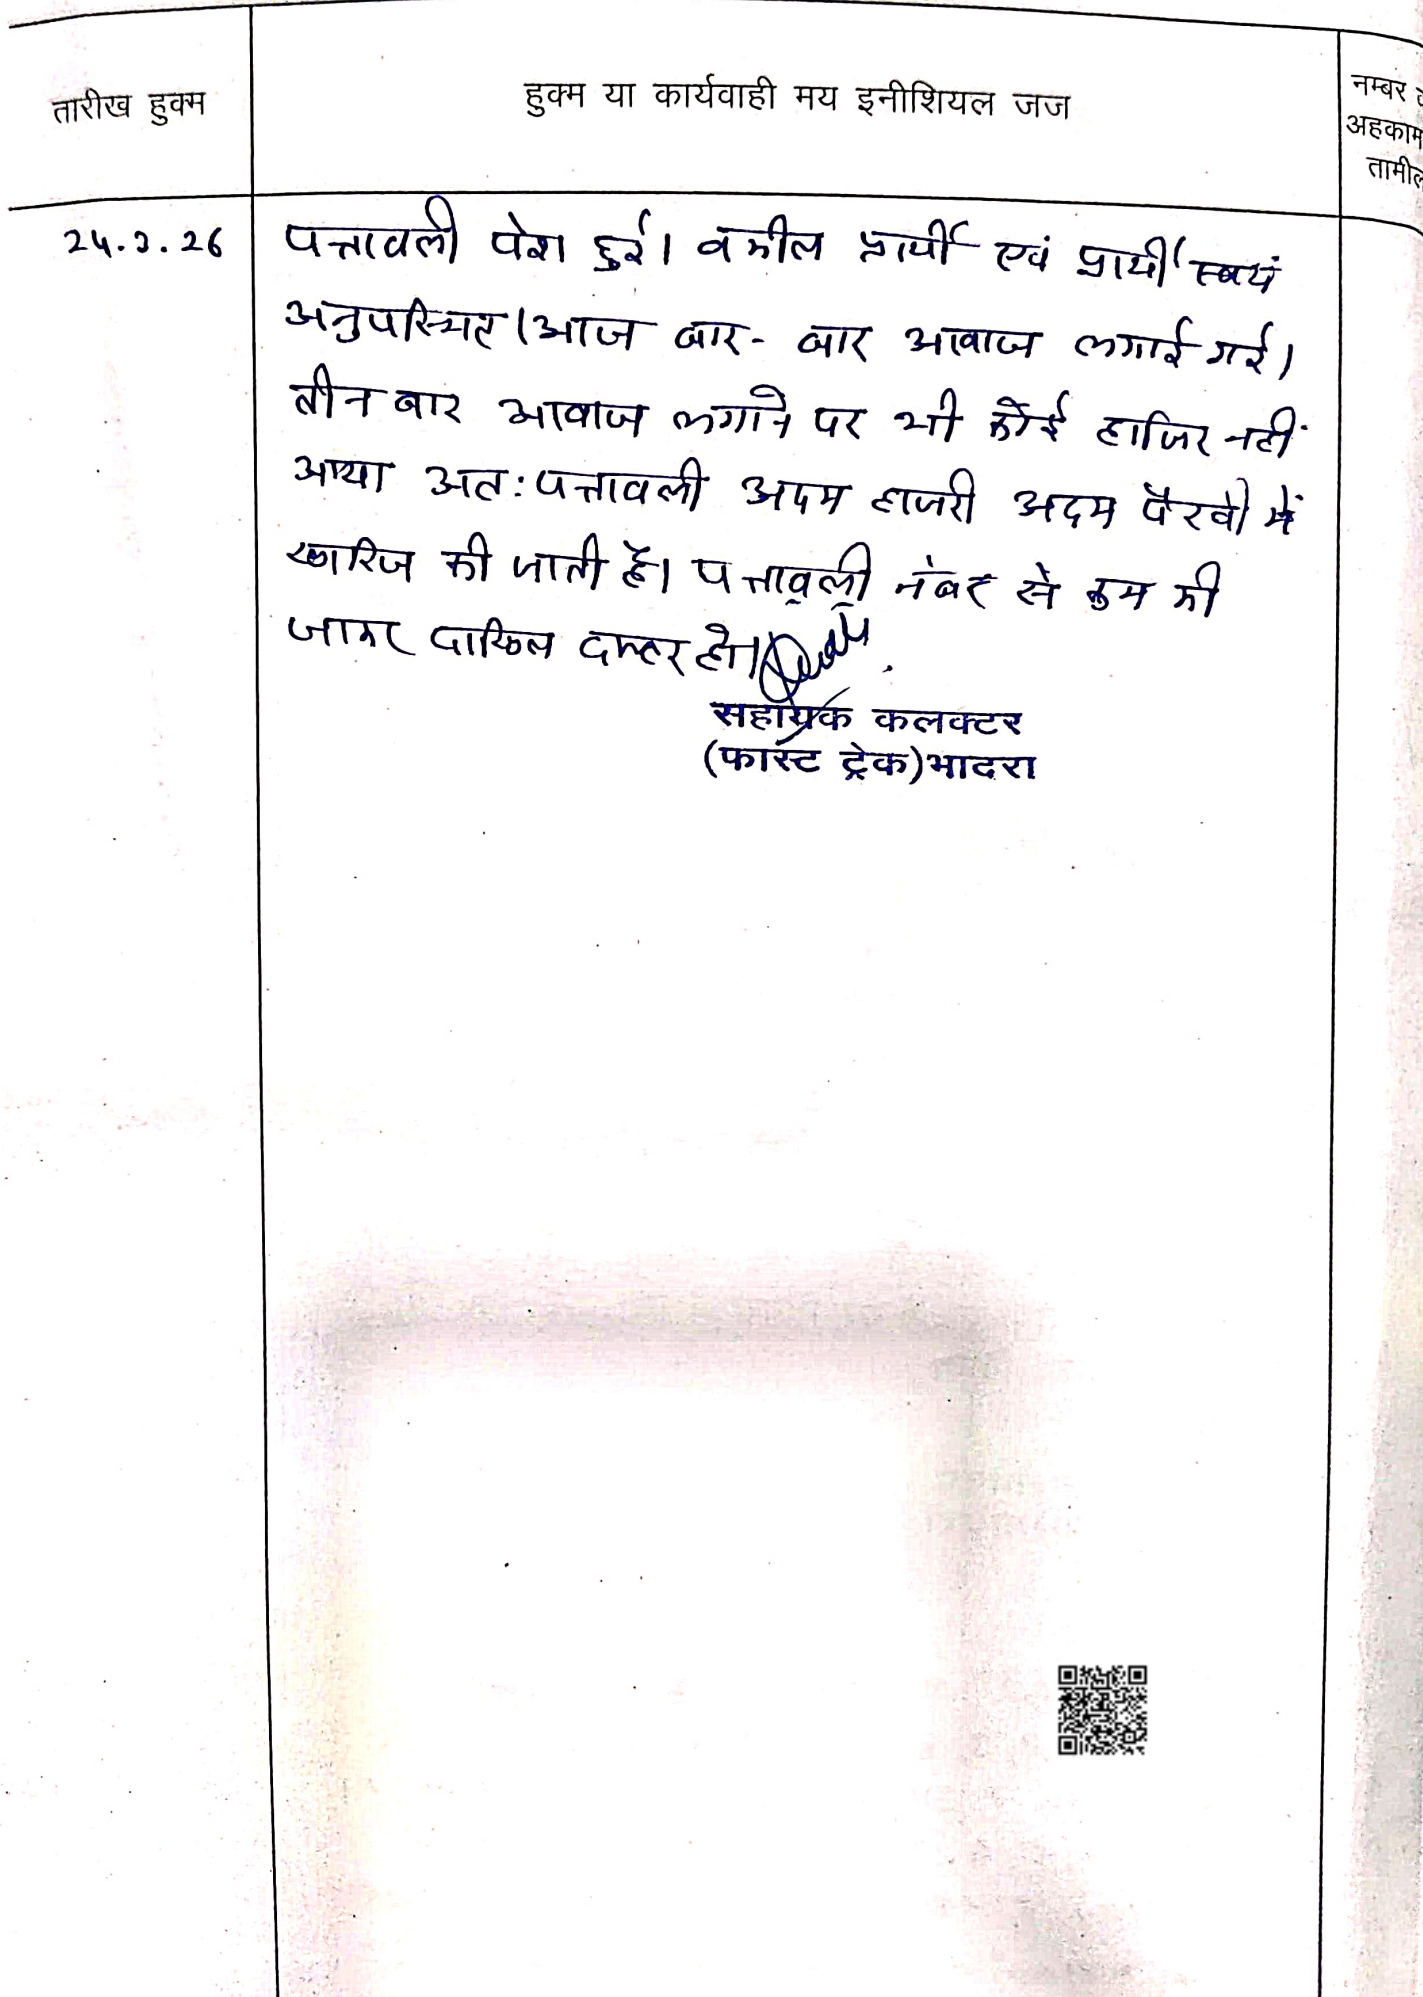 तारीख हुक्म
हुक्म या कार्यवाही मय इनीशियल जज
नम्बर
अहकाम
तामील
24.2.26
पत्रावली पेश हुई। वकील प्रार्थी एवं प्रार्थी स्वयं
अनुपस्थित। आज बार-बार आवाज लगाई गई।
तीन बार आवाज लगाने पर भी कोई हाजिर नहीं
आया अतः पत्रावली अदम हाजरी अदम पैरवी में
खारिज की जाती है। पत्रावली नंबर से कम की
जाकर दाखिल दफ्तर हो।
सहायक कलक्टर
(फास्ट ट्रेक) भादरा